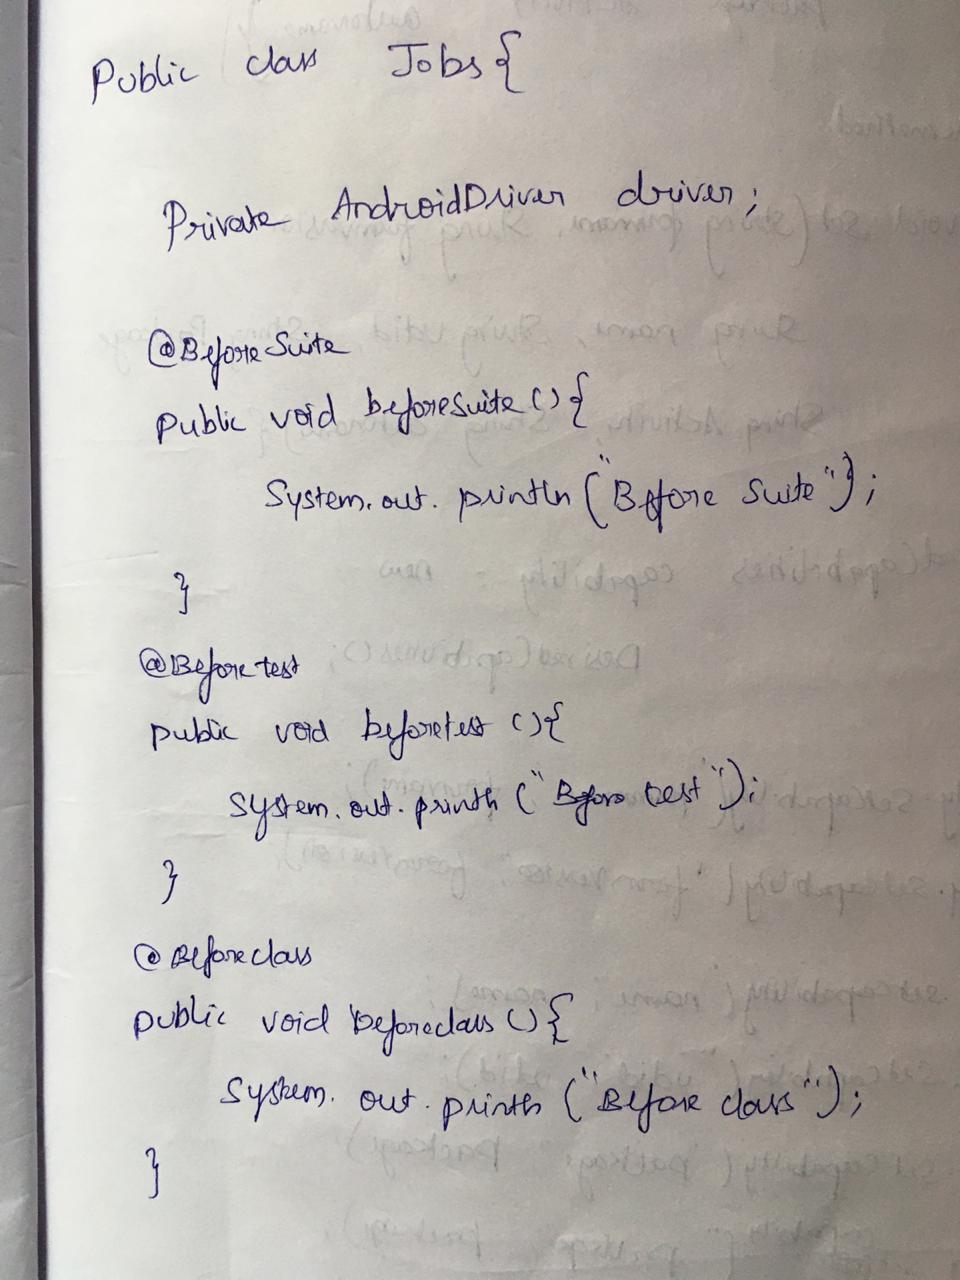 Public class Jobs{
Private AndroidDriver driver;
@BeforeSuite
Public void beforesuite(){
System.out.println("Before Suite");
}
@Beforetest
public void beforetest(){
System.out.println("Before test");
}
@Beforeclass
public void beforeclass(){
System.out.println("Before class");
}